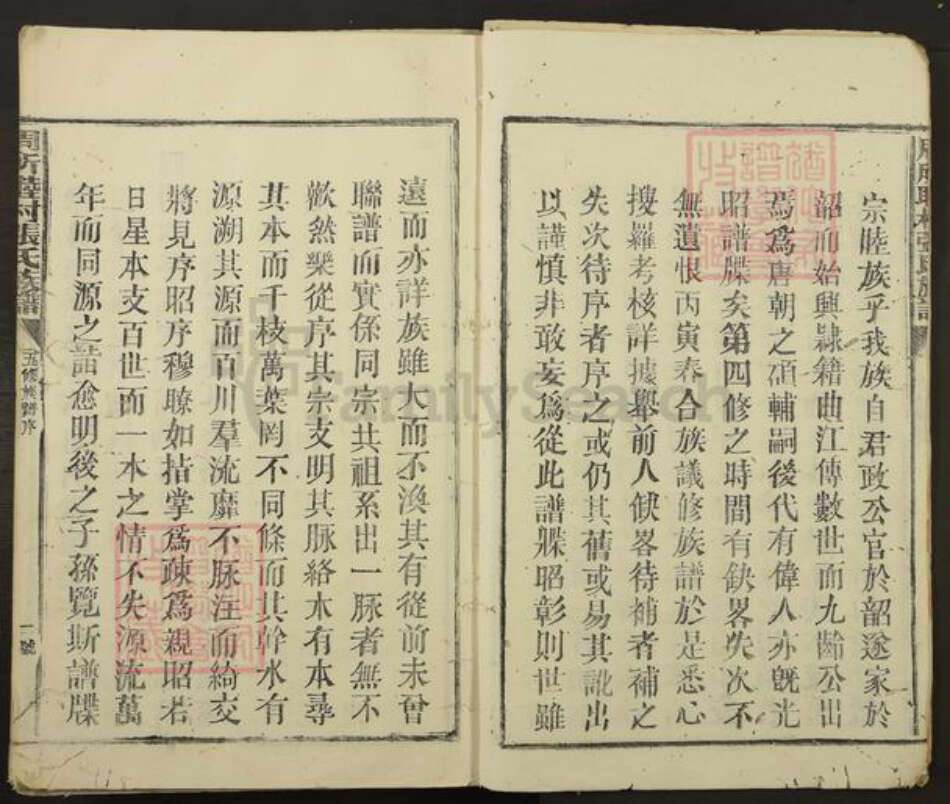 宗睦族乎我族自君政公官於韶遂家於
韶而始興隷籍曲江傳數世而九齡公出
焉爲唐朝之碩輔嗣後代有偉人亦旣光
昭譜牒矣第四修之時間有缺畧失次不
無遺恨丙寅春合族議修族譜於是悉心
搜羅考核詳據舉前人缺畧待補者補之
失次待序者序之或仍其舊或易其訛出
以謹慎非敢妄爲從此譜牒昭彰則世雖
遠而亦詳族雖大而不渙其有從前未曾
聯譜而實係同宗共祖系出一脉者無不
歡然樂從序其宗支明其脉絡木有本尋
其本而千枝萬葉罔不同條而其幹水有
源溯其源而百川羣流靡不脉注而綺交
將見序昭序穆瞭如指掌爲疎爲親昭若
日星本支百世而一本之情不失源流萬
年而同源之誼愈明後之子孫覽斯譜牒
張氏族譜
五修族譜序
二號
FamilySearch